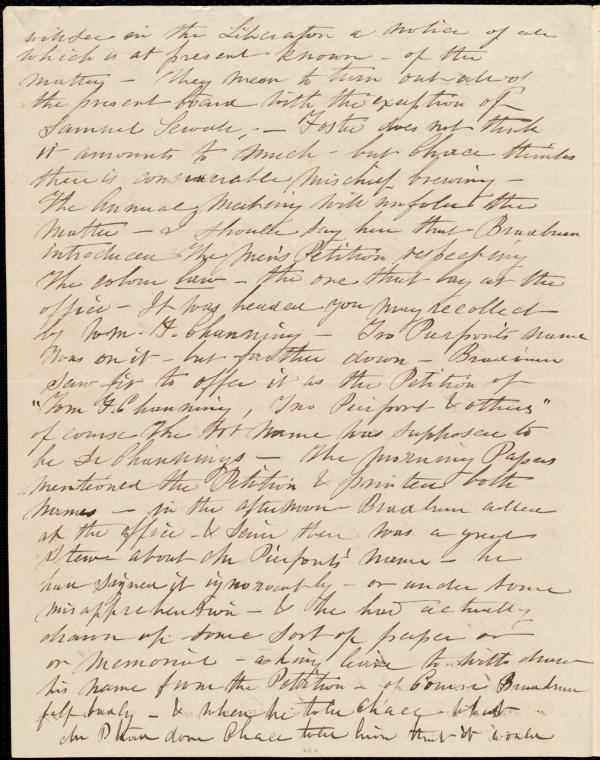 will see in the Liberator a notice of all
which is at present known - of the
matter - They mean to turn out all of
the present board with the exception of
Samuel Sewall, - Foster does not think
it amounts to much - but Chace thinks
there is considerable mischief brewing -
The Annual Meeting will unfold the
matter - & I should say here that Bradburn
introduced the men's Petition respecting
the colour law - the one that lay at the
office - It was headed you may recollect
by Wm. F. Channing - Jno Pierpont's name
was on it - but further down - Bradburn
saw fit to offer it as the Petition of
"Wm F. Channing, Jno Pierpont & others"
of course the 1st name was supposed to
be Dr Channings - the morning Papers
mentioned the Petition & printed both
names - in the afternoon Bradburn called
at the office - & said there was a great
stew about Mr Pierponts' name - he
had signed it ignorantly - or under some
misapprehension - & he had actually
drawn up some sort of paper or
or memorial - asking leave to withdraw
his name from the Petition - of course Bradburn
felt badly - & when he told Chace what
Mr P had done Chace told him that it would